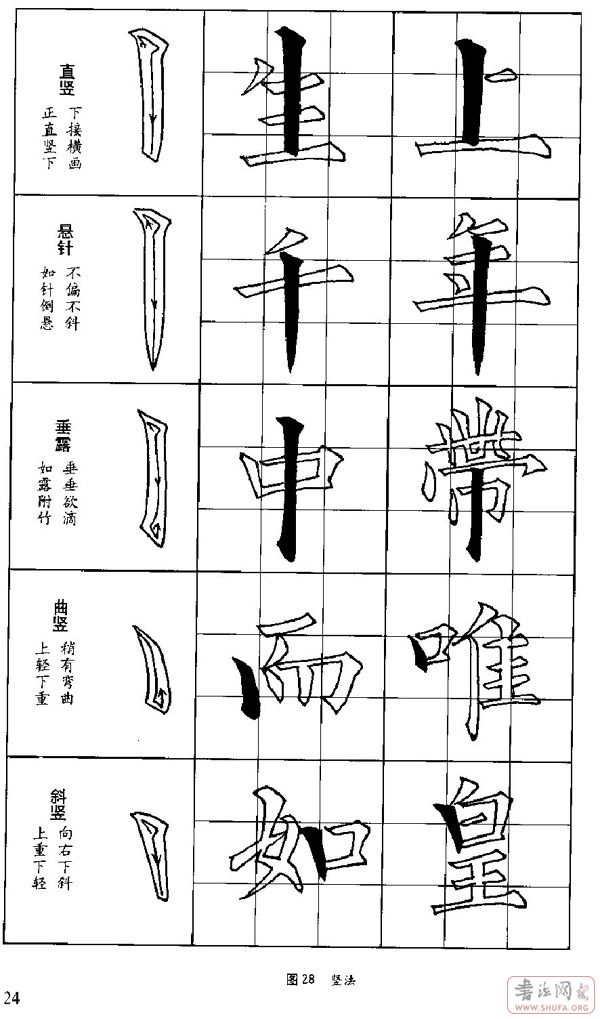 直竖
下接横画
正直竖下
生 上
悬针
不偏不斜
如针倒悬
千 年
垂露
垂垂欲滴
如露附竹
中 帶
曲竖
稍有弯曲
上轻下重
而 唯
斜竖
向右下斜
上重下轻
如 皇
图28 竖法
24
書法网
WWW.SHUFA.ORG